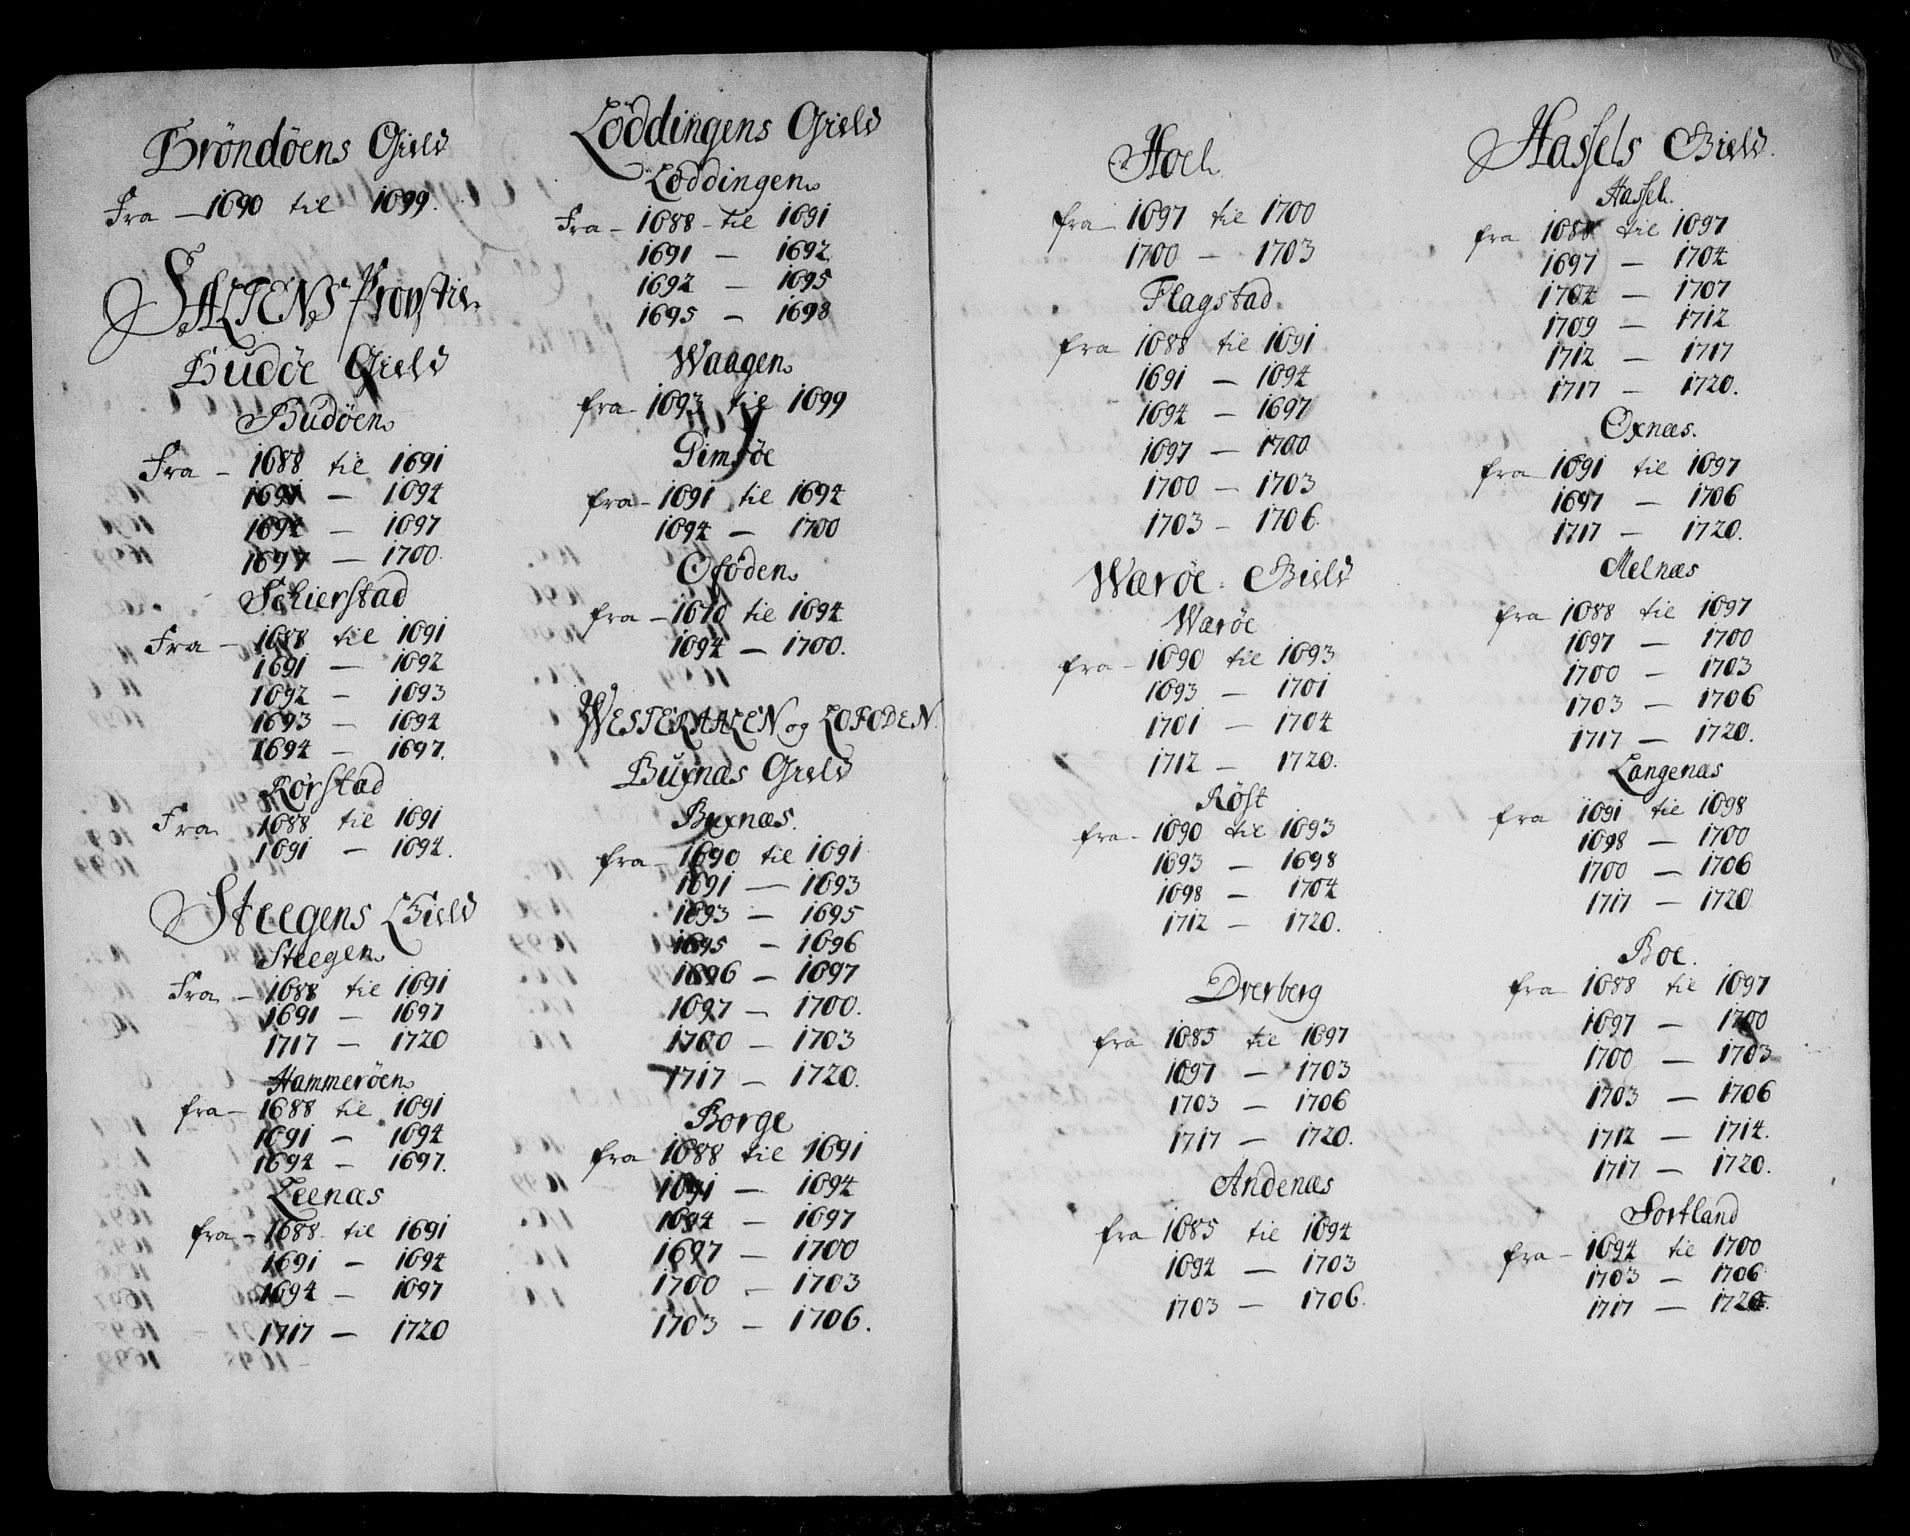 Bröndöens Gield
Fra – 1690 til 1699.
SALTENS Provstie
Budöe Gield
Budöen
Fra – 1688 til 1691
1691 – 1694
1694 – 1697
1697 – 1700.
Schierstad
Fra – 1688 til 1691
1691 – 1692
1692 – 1693
1693 – 1694
1694 – 1697.
Rorstad
Fra 1688 til 1691
1691 – 1694.
Steegens Gield
Steegen
Fra – 1688 til 1691
1691 – 1697
1717 – 1720
Hammeröen
fra – 1688 til 1691
1691 – 1694
1694 – 1697.
Leenæs
fra – 1688 til 1691
1691 – 1694
1694 – 1697
1717 – 1720
Löddingens Gield
Löddingen
Fra – 1688 – til 1691
1691 – 1692
1692 – 1695
1695 – 1698
Waagen
fra – 1693 til 1699
Gimsöe
fra – 1691 til 1694
1694 – 1700
Ofoden
fra – 1670 til 1694
1694 – 1700.
WESTERAALEN og LOFODEN
Buxnæs Gield
Buxnæs.
fra – 1690 til 1691
1691 – 1693
1693 – 1695
1695 – 1696
1696 – 1697
1697 – 1700.
1700 – 1703
1717 – 1720.
Borge
fra 1688 til 1691
1691 – 1694
1694 – 1697
1697 – 1700
1700 – 1703
1703 – 1706.
Hoel
fra – 1697 til 1700
1700 – 1703
Flagstad
fra 1688 til 1691
1691 – 1694
1694 – 1697
1697 – 1700
1700 – 1703
1703 – 1706.
Wæröe Gield
Wæröe
fra – 1690 til 1693
1693 – 1701
1701 – 1704
1712 – 1720.
Röst
fra – 1690 til 1693
1693 – 1698
1698 – 1704
1712 – 1720.
Dverberg
fra 1685 til 1697
1697 – 1703
1703 – 1706
1717 – 1720.
Andenæs
fra 1685 til 1694
1694 – 1703
1703 – 1706.
Hassels Gield.
Hassel.
fra 1688 til 1697
1697 – 1704
1704 – 1707
1709 – 1712
1712 – 1717
1717 – 1720.
Oxnæs.
fra 1691 til 1697
1697 – 1706
1717 – 1720.
Melnæs
fra 1688 til 1697
1697 – 1700
1700 – 1703
1703 – 1706
1717 – 1720.
Langenæs
fra 1691 til 1698
1698 – 1700
1700 – 1706
1717 – 1720
Boe.
fra 1688 til 1697
1697 – 1700
1700 – 1703
1703 – 1706
1712 – 1714.
1717 – 1720.
Sortland
fra – 1694 til 1700
1703 – 1706
1717 – 1720.